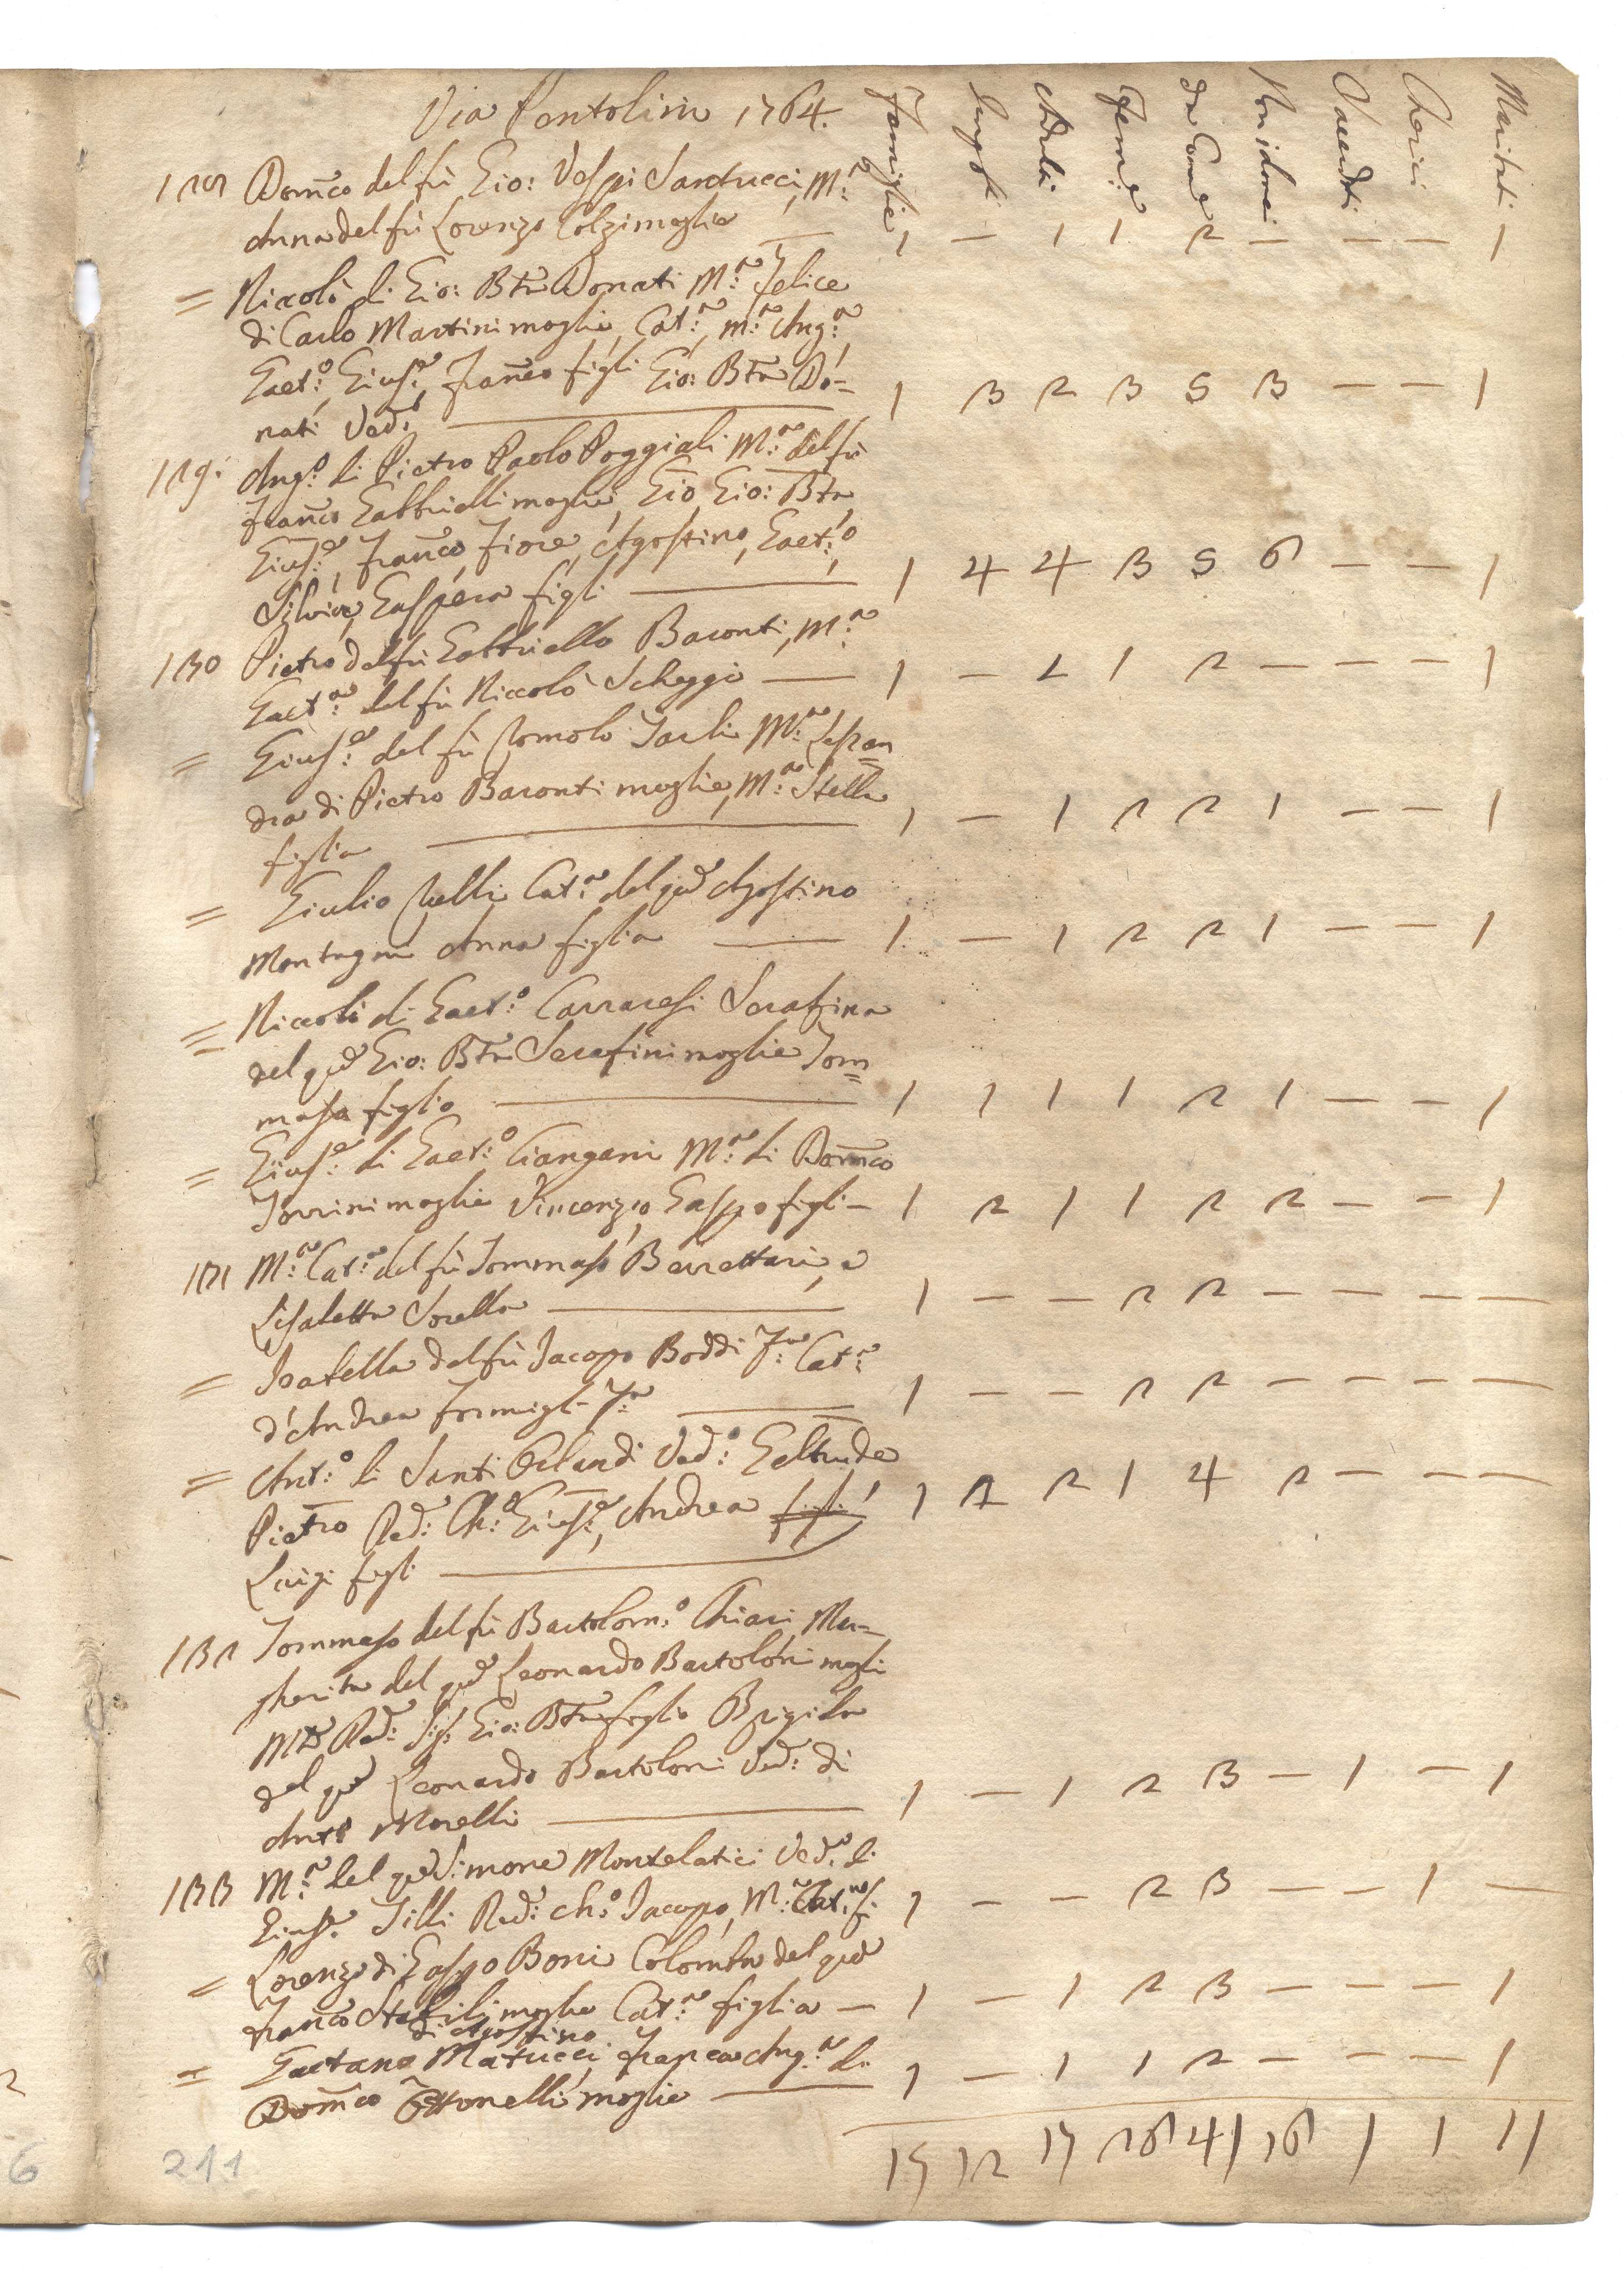 Via Pentolini 1764.
Famiglie Impub: Adulti Fem:e da Com:e Non idonei Sacerdoti Cherici Mariti
128 Dom̃co del fù Gio: Vespi Santucci, M:a
Anna del fù Lorenzo Colzi moglie — 1 — 1 1 2 — — — 1
= Niccolò di Gio: Btta Donati M:a Felice
di Carlo Martini moglie, Cat:a, m:a Ang:a,
Gaet:o, Gius:e, Frañco figli Gio: Btta Do=
nati Ved:o — 1 3 2 3 5 3 — — 1
129. Ang:o di Pietro Paolo Poggiali M:a del fù
Frañco Gabbrielli moglie, Gio Gio: Btta
Gius:e, Frañco, Fiore, Agostino, Gaet:o,
Silvia, Gaspera figli — 1 4 4 3 5 6 — — 1
130 Pietro del fù Gabbriello Baronti, M:a
Gaet:a del fù Niccolò Scheggi — 1 — 1 1 2 — — — 1
= Gius:e del fù Romolo Tarli M:a Lessan
dra di Pietro Baronti moglie, M:a Stella
figlia — 1 — 1 2 2 1 — — 1
= Giulio Nelli Cat:a del qd Agostino
Montagni Anna figlia — 1 — 1 2 2 1 — — 1
= Niccolò di Gaet:o Carraresi Serafina
del qd Gio: Btta Serafini moglie Tom=
maso figlio — 1 1 1 1 2 1 — — 1
= Gius:e di Gaet:o Ciangani M:a di Dom̃co
Torrini moglie Vincenzio, Gaspo figli — 1 2 1 1 2 2 — — 1
131 M:a Cat:a del fù Tommaso Berrettari, e
Lisabetta Sorella — 1 — — 2 2 — — — —
= Isabella del fù Jacopo Boddi F:a Cat:a
d'Andrea Formigli F:a — 1 — — 2 2 — — — —
= Ant:o di Santi Orlandi Ved:o Geltrude
Pietro Red: Ch:o Gius:e, Andrea figli
Luigi figli — 1 2 2 1 4 2 — — —
132 Tommaso del fù Bartolom:o Chiari Mar=
gherita del qd Leonardo Bartoloni mogli
Red: Sig: Gio: Btta figlio Brigida
del qd Leonardo Bartoloni Ved: di
Anto Morelli — 1 — 1 2 3 — 1 — 1
133 M:a del qd Simone Montelatici Ved:a di
Gius:e Tilli Red: Ch:o Jacopo, M:a Cat:a fi. 1 — — 2 3 — — 1 —
= Lorenzo di Gaspo Boni Colomba del qd
Frañco Stabili moglie Cat:a figlia — 1 — 1 2 3 — — — 1
di Agostino
= Gaetano Matucci, Franca Ang:a di
Dom̃co Ottonelli moglie — 1 — 1 1 2 — — — 1
15 12 17 26 41 16 1 1 11
211
6